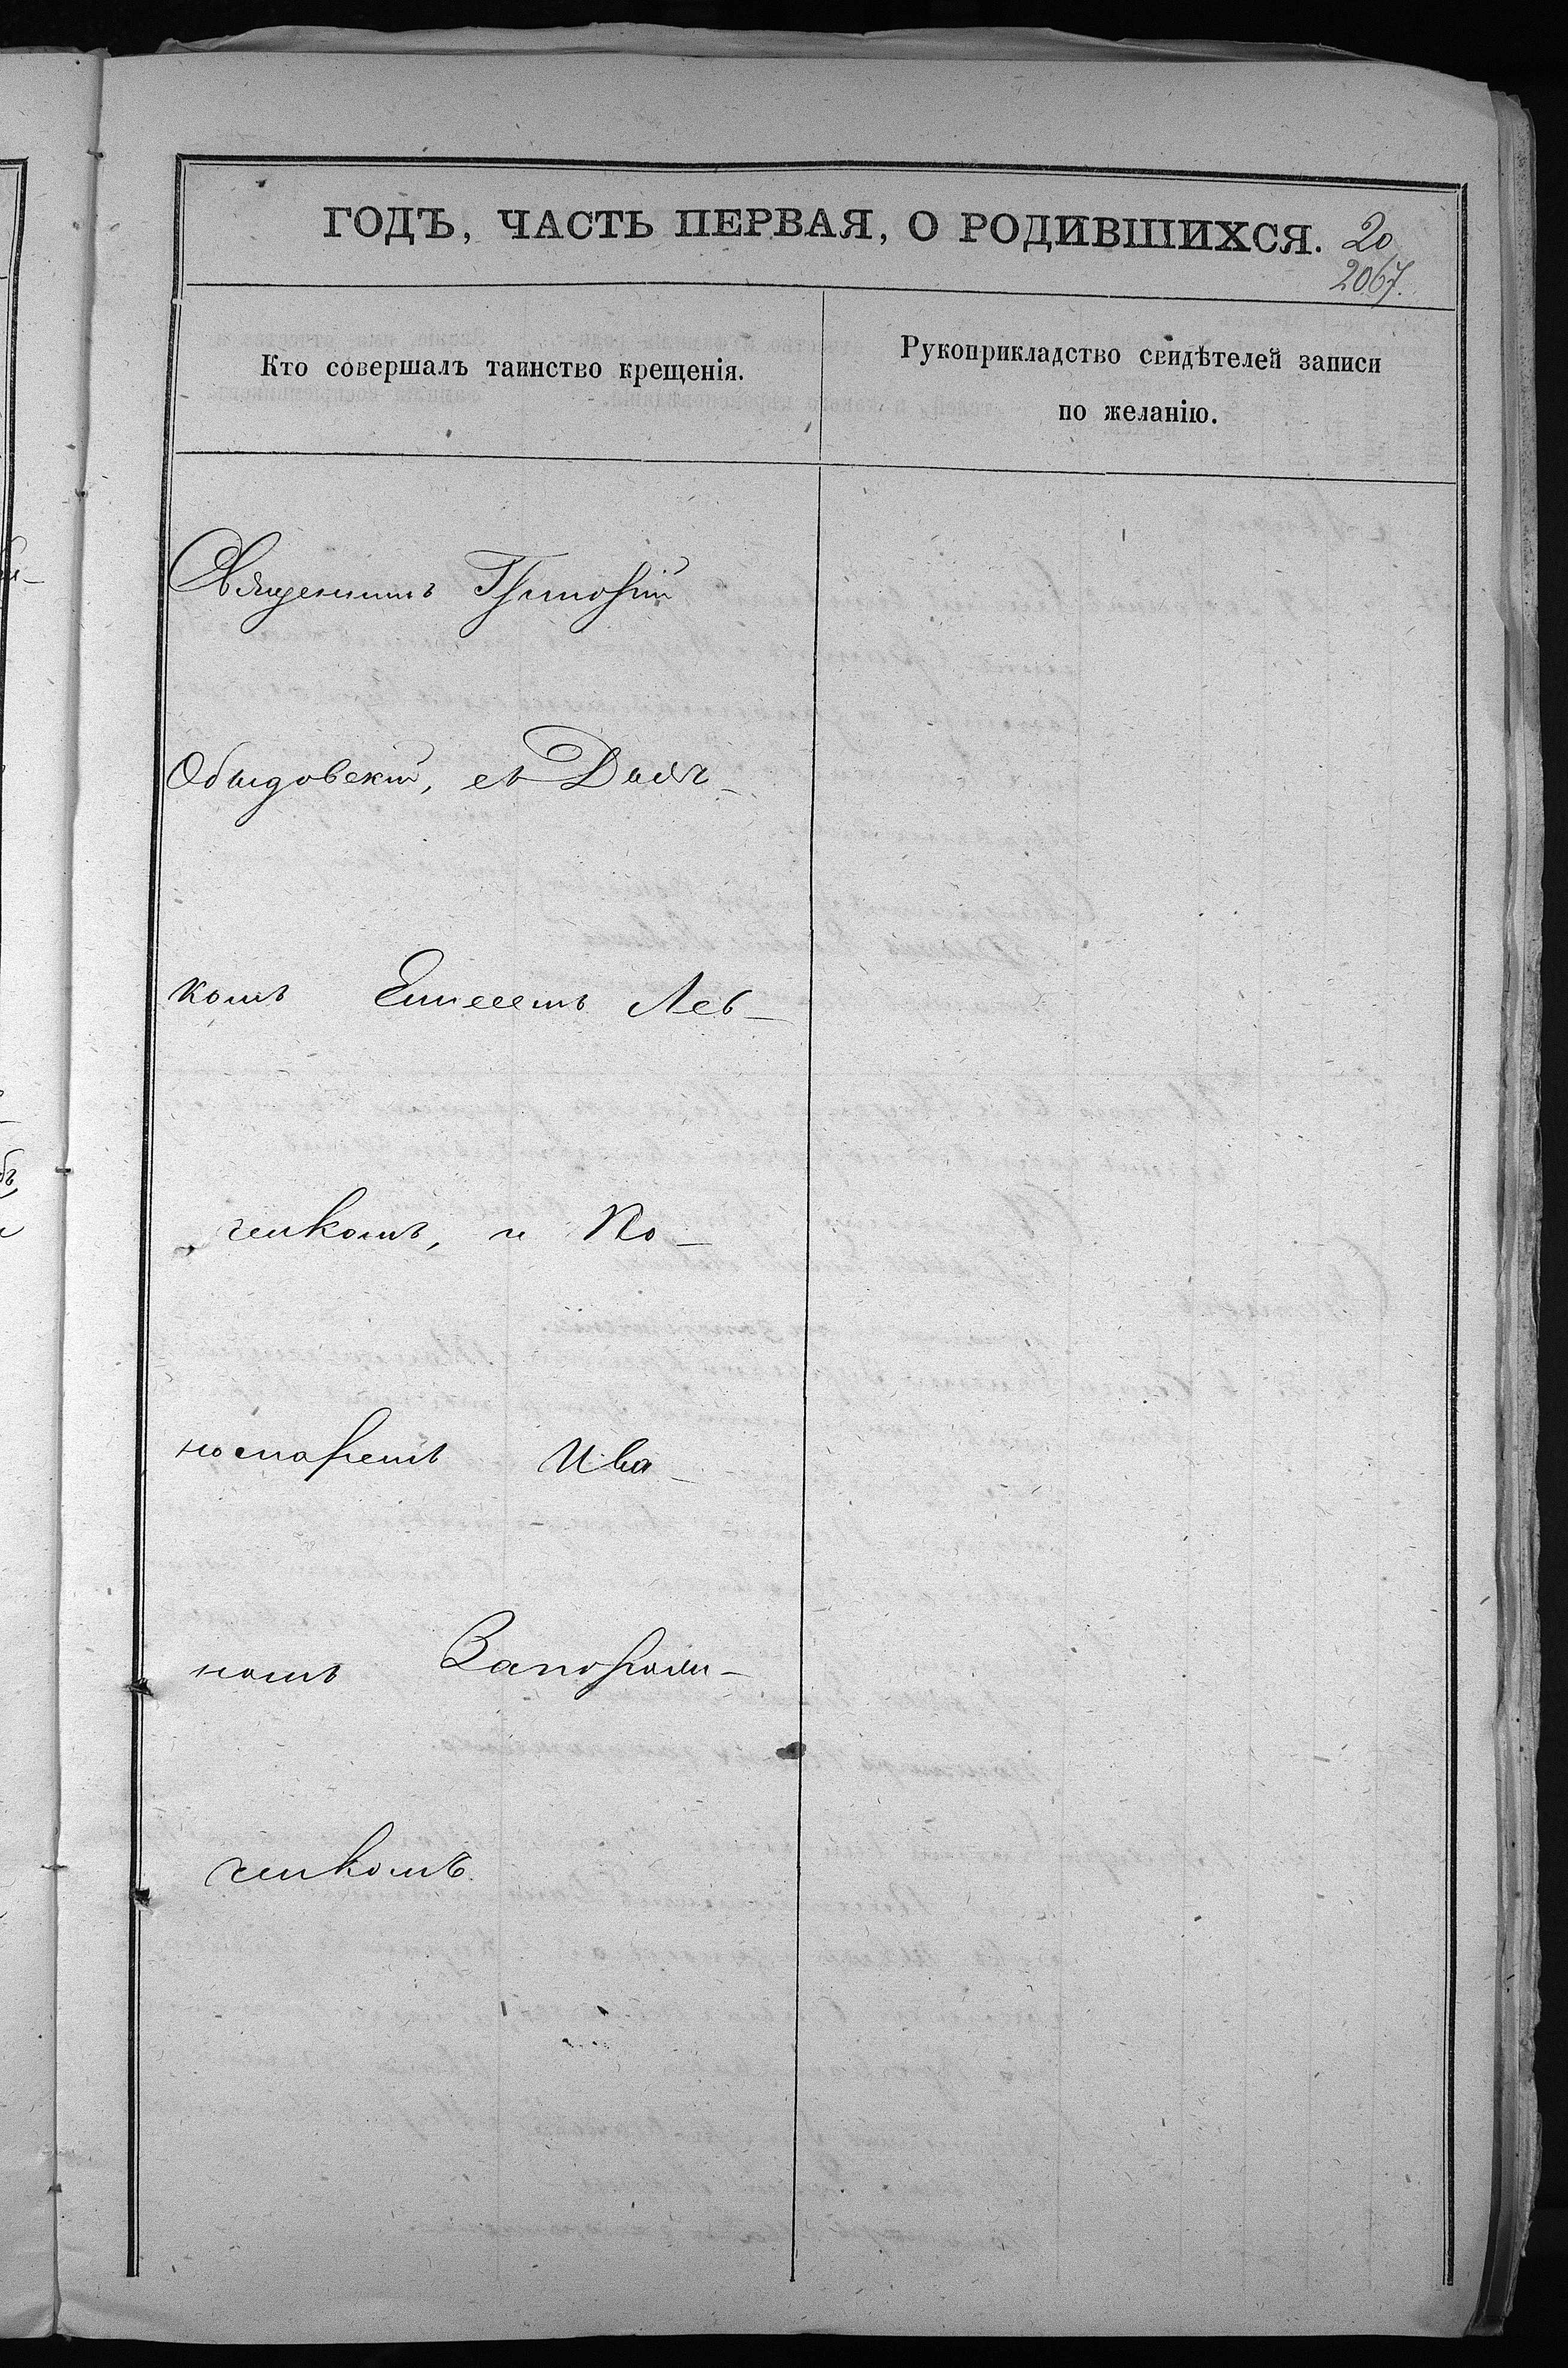 ГОДЪ, ЧАСТЬ ПЕРВАЯ, О РОДИВШИХСЯ. 20
2067.
Кто совершалъ таинство крещенія.
Рукоприкладство свидѣтелей записи
по желанію.
Священникъ Григорій
Обыдовскій, съ Дьяч-
комъ Ели Лев-
ченкомъ, и По-
номаремъ Ива-
номъ Запорож-
ченкомъ.